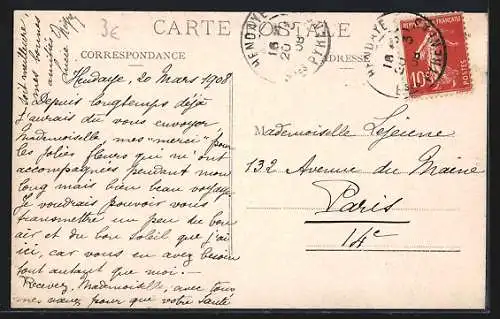 3€
CARTE POSTALE
CORRESPONDANCE
ADRESSE
HENDAYE
18
20
08
PYRENEES
HENDAYE
18
REPUBLIQUE FRANÇAISE
POSTES
10c
Hendaye, 20 Mars 1908
Depuis longtemps déjà
j'aurais du vous envoyer
Mademoiselle, mes "merci" pour
les jolies fleurs qui m'ont
accompagnées pendant mon
long mais bien beau voyage.
Je voudrais pouvoir vous
transmettre un peu du bon
air et du bon soleil que j'ai
ici, car vous en avez besoin
tout autant que moi. -
Recevez, Mademoiselle, avec tous
mes vœux pour que votre santé
soit meilleure,
mes bonnes
amitiés
Mademoiselle Lejeune
132 Avenue du Maine
Paris
14e